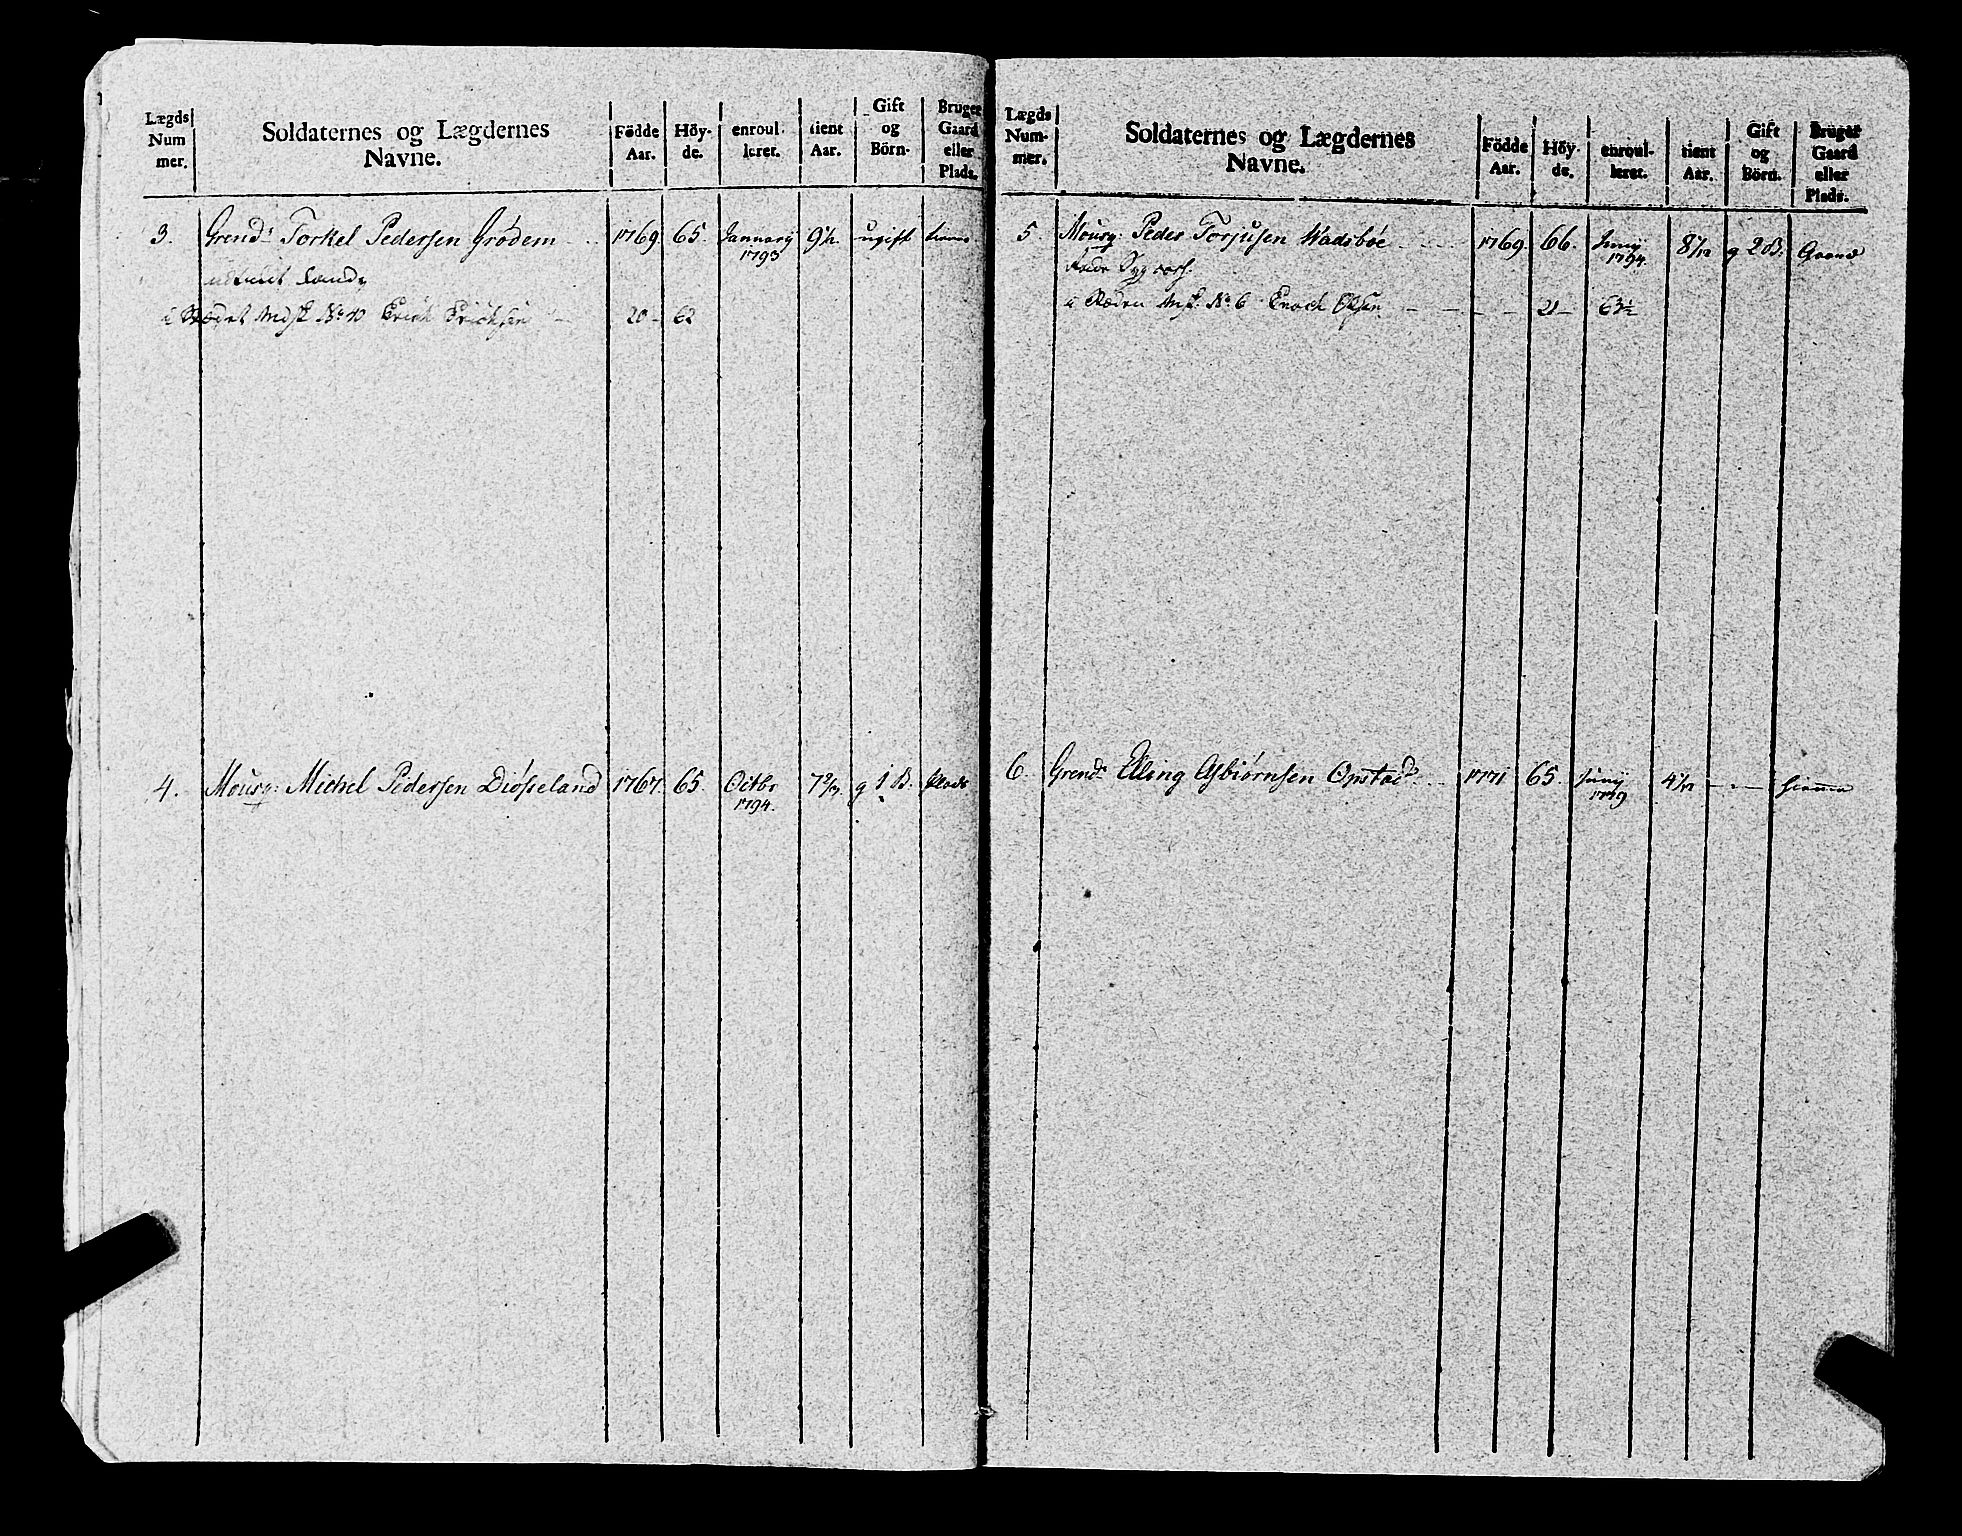 Lægds Num mer.
Soldaternes og Lægdernes Navne.
Födde Aar.
Höy- de.
enroul- leret.
tient Aar.
Gift og Börn.
Bruger Gaard eller Plads.
3. Grend: Torkel Pedersen Grödem 1769. 65. January 1793 ugift
20 - 62
4. Mousq: Michel Pedersen Diösseland 1767. 65. Octbr 1794. g 1 B. Plads
Lægds Num- mer.
Soldaternes og Lægdernes Navne.
Födde Aar.
Höy- de.
enroul- leret.
tient Aar.
Gift og Börn.
Bruger Gaard eller Plads.
5. Mousq: Peder Torjusen Wadsböe 1769. 66. Juny 1794. 8 1/12 g 2 B. Gaard
No 6 Enoch Olsen 21 - 63 1/2
6. Grend: Elling Asbiörnsen Opstad 1771 65. Juny